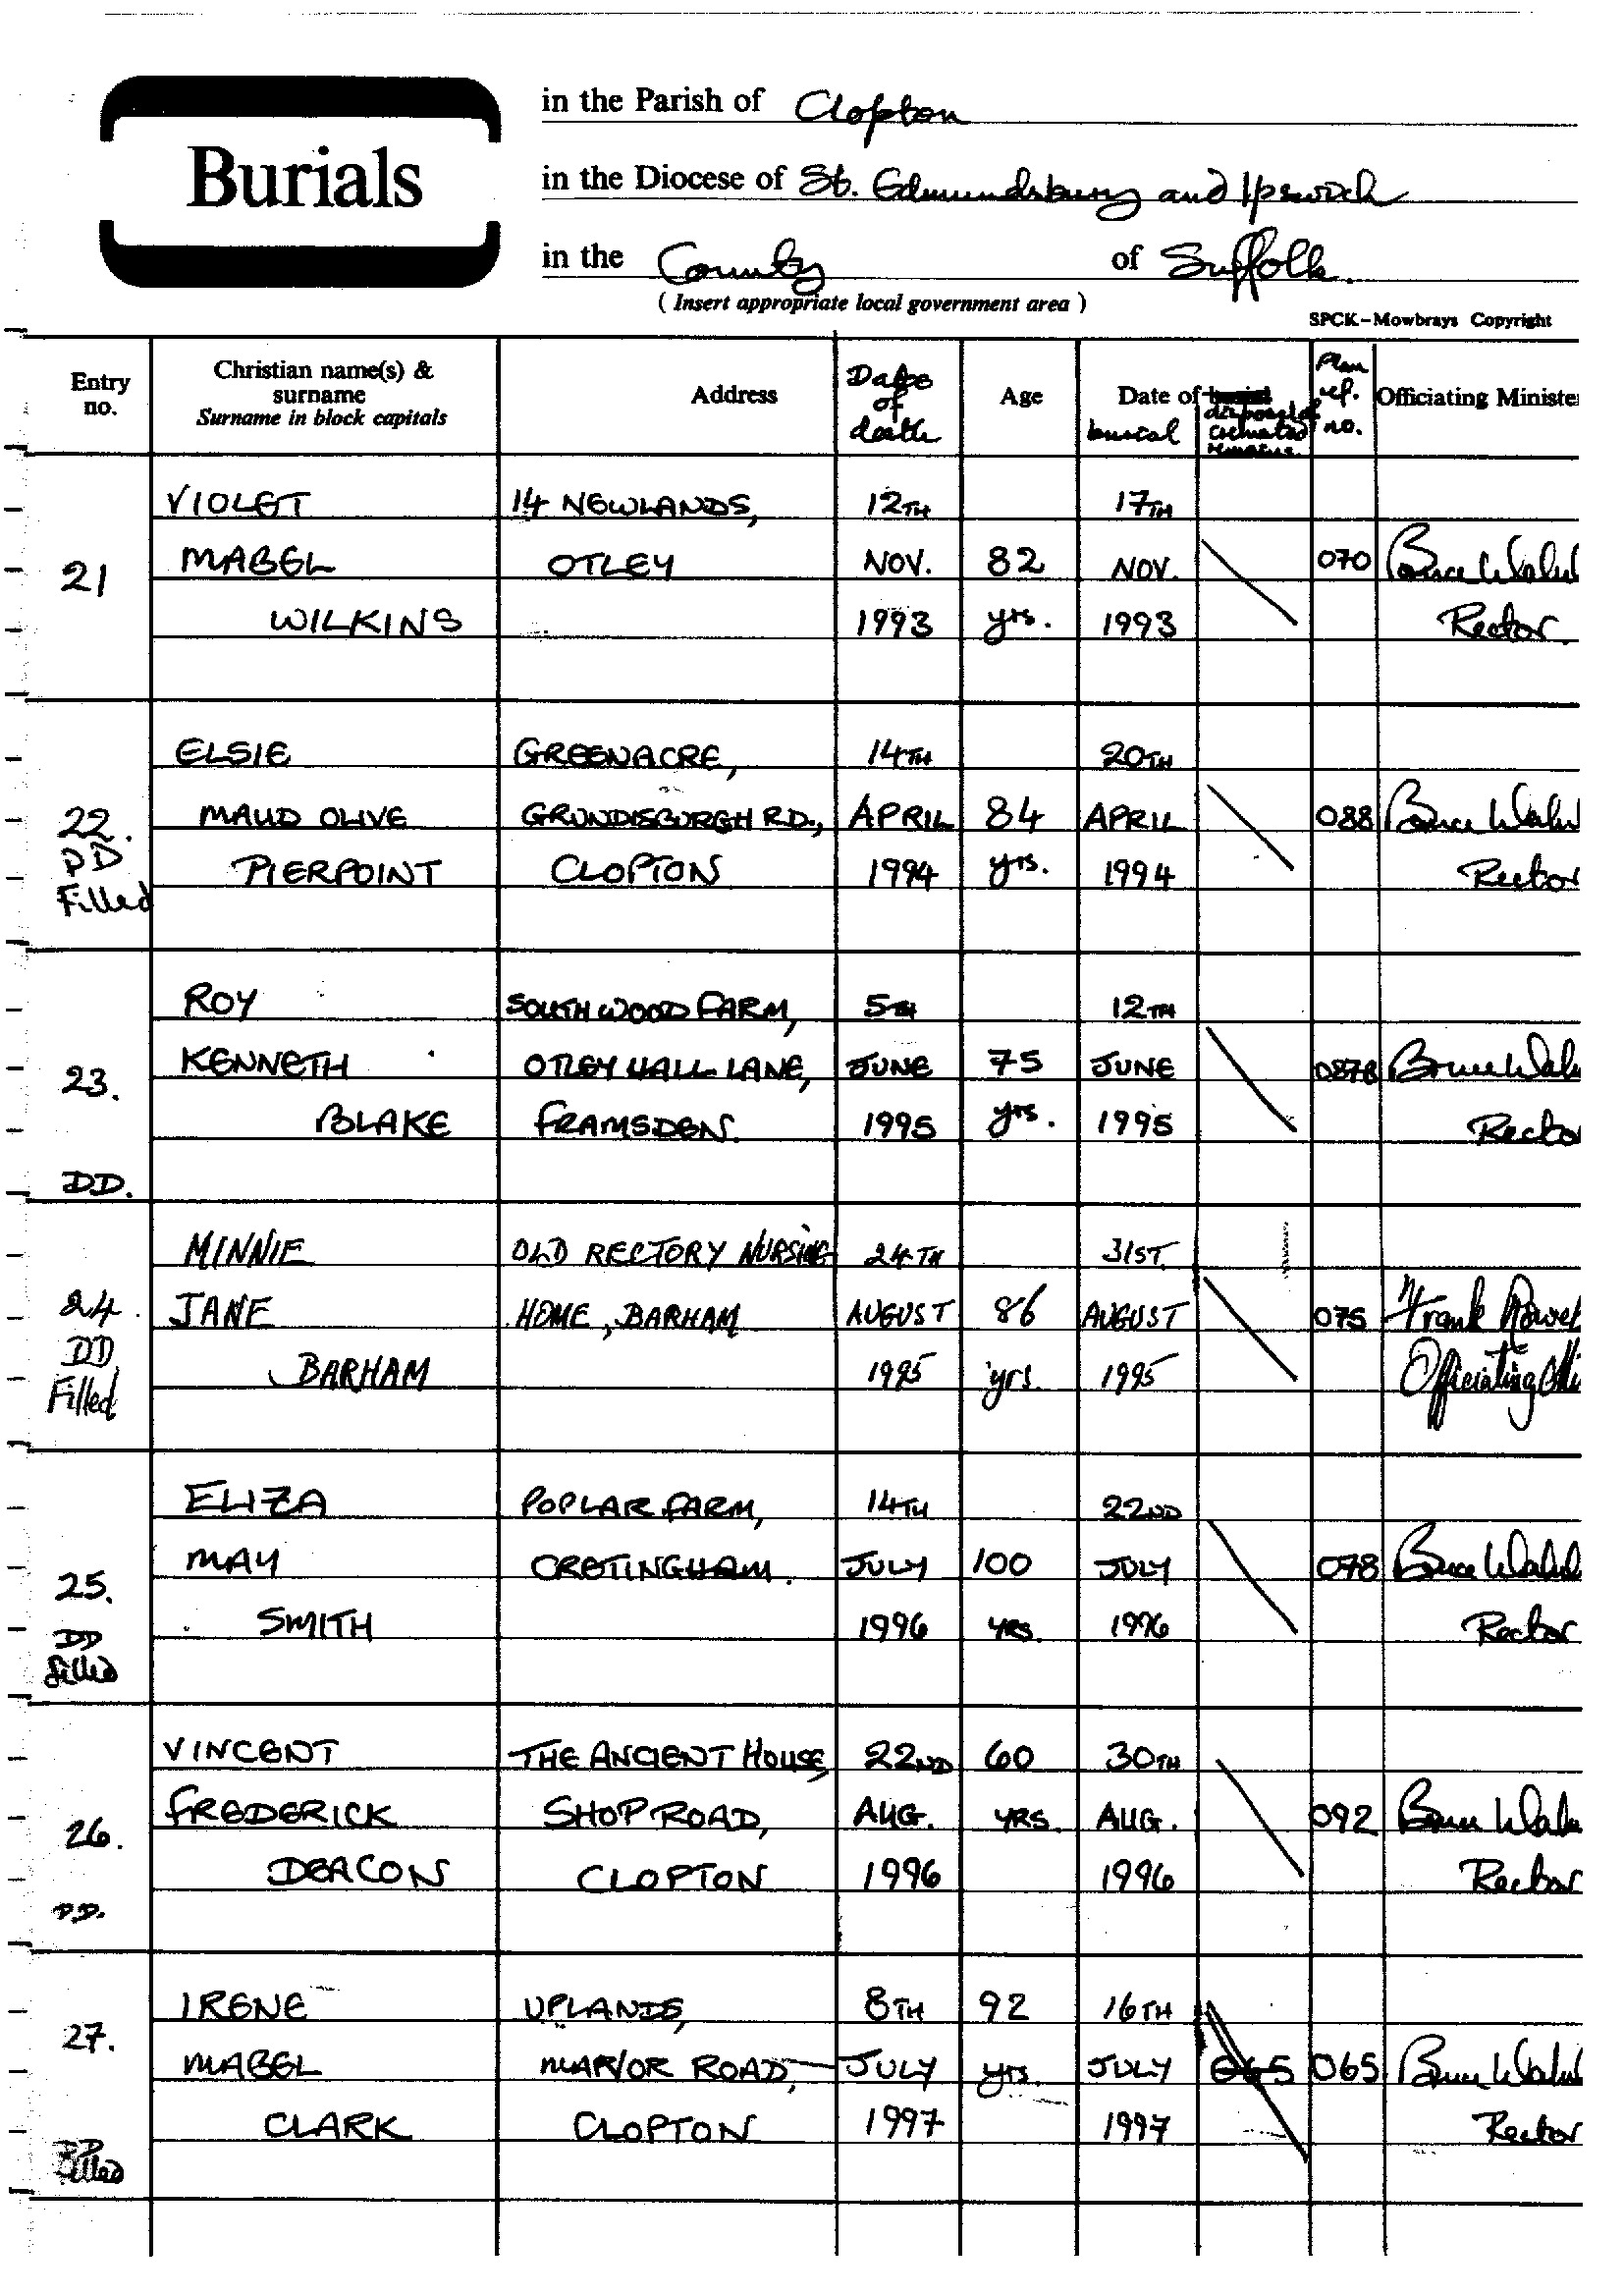 Burials
in the Parish of Clopton
in the Diocese of St. Edmundsbury and Ipswich
in the County of Suffolk.
( Insert appropriate local government area )
SPCK–Mowbrays Copyright
Entry no. Christian name(s) & surname Surname in block capitals Address Date of death Age Date of burial disposal of cremated remains Plan ref. no. Officiating Ministe
VIOLET 14 NEWLANDS, 12TH 17TH
21 MABEL OTLEY NOV. 82 NOV. 070 Bruce
WILKINS 1993 yrs. 1993 Rector.
ELSIE GREENACRE, 14TH 20TH
22. MAUD OLIVE GRUNDISBURGH RD., APRIL 84 APRIL 088 Bruce
DD PIERPOINT CLOPTON 1994 yrs. 1994 Rector
Filled
ROY SOUTH WOOD FARM, 5TH 12TH
23. KENNETH OTLEY HALL LANE, JUNE 75 JUNE 087B Bruce
BLAKE FRAMSDEN. 1995 yrs. 1995 Recto
DD.
MINNIE OLD RECTORY NURSING 24TH 31ST.
24. JANE HOME, BARHAM AUGUST 86 AUGUST 075 Frank
DD BARHAM 1995 yrs. 1995 Officiating Mi
Filled
ELIZA POPLAR FARM, 14TH 22ND
25. MAY CRETINGHAM. JULY 100 JULY 078 Bruce
DD SMITH 1996 YRS. 1996 Rector
filled
VINCENT THE ANCIENT HOUSE, 22ND 60 30TH
26. FREDERICK SHOP ROAD, AUG. YRS. AUG. 092 Bruce
DEACON CLOPTON 1996 1996 Rector
DD.
IRENE UPLANDS, 8TH 92 16TH
27. MABEL MANOR ROAD, JULY yrs. JULY 065 065 Bruce
CLARK CLOPTON 1997 1997 Rector
DD
filled